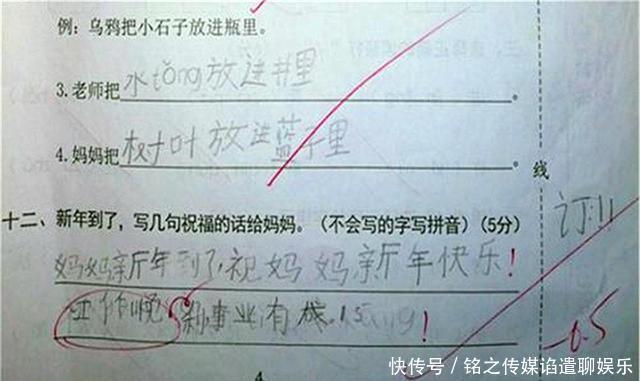 例：乌鸦把小石子放进瓶里。
3.老师把水tǒng放进井里。
4.妈妈把树叶放进蓝子里。
线
十二、新年到了，写几句祝福的话给妈妈。（不会写的字写拼音）（5分）
订!!
妈妈新年到了,祝妈妈新年快乐！
工作悦 事业有成
-0.5
4
快传号／铭之传媒谄遣聊娱乐